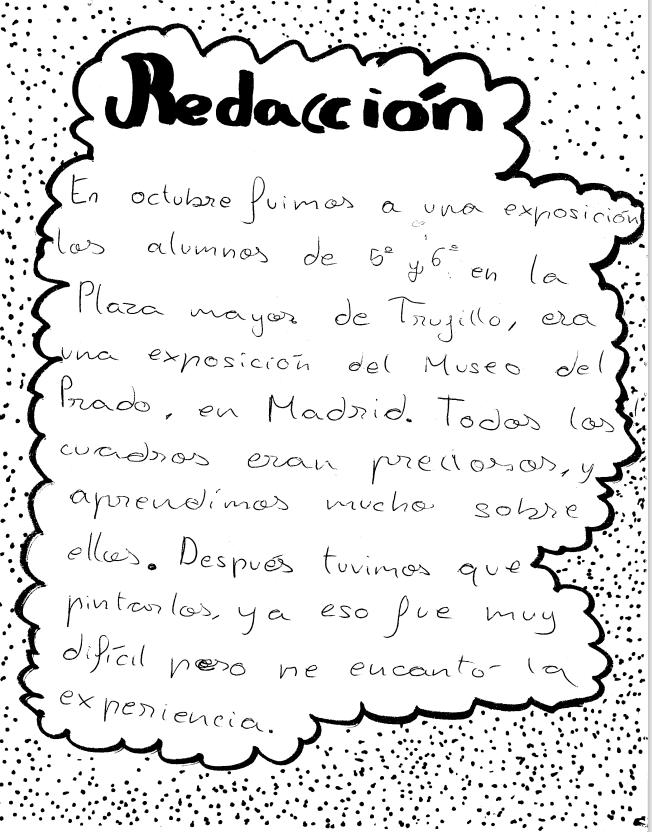 Redacción
En octubre fuimos a una exposición
los alumnos de 5º y 6º en la
Plaza mayor de Trujillo, era
una exposición del Museo del
Prado, en Madrid. Todos los
cuadros eran preciosos, y
aprendimos mucho sobre
ellos. Después tuvimos que
pintarlos, y a eso fue muy
difícil pero me encantó la
experiencia.